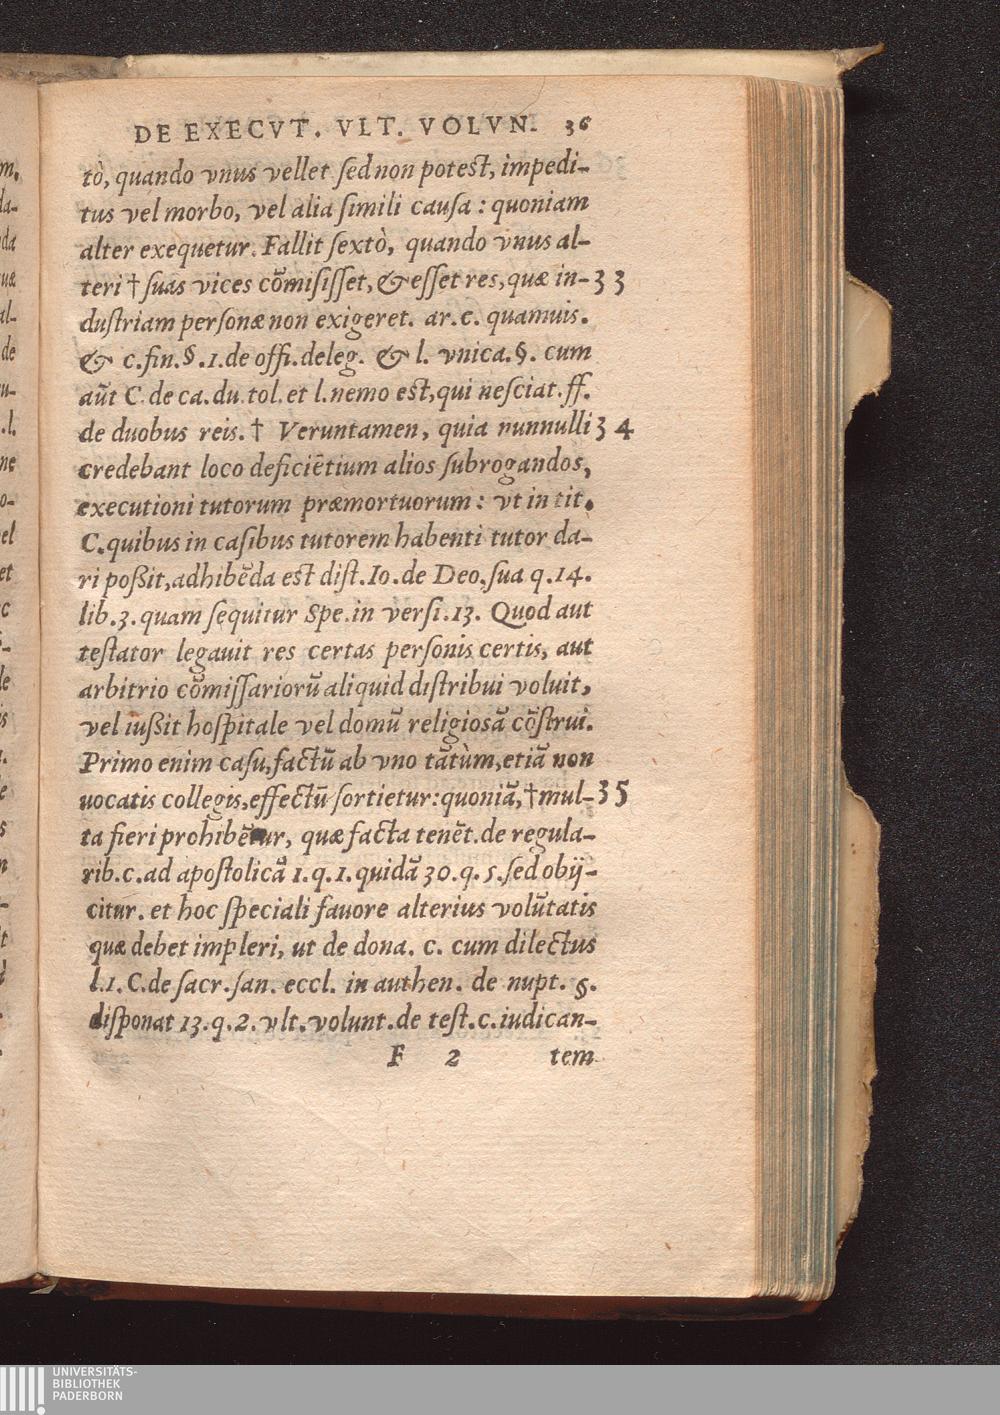 DE EXECVT. VLT. VOLVN. 36
tò, quando vnus vellet sed non potest, impedi-
tus vel morbo, vel alia simili causa : quoniam
alter exequetur. Fallit sextò, quando vnus al-
teri † suas vices cõmisisset, & esset res, quæ in- 33
dustriam personæ non exigeret. ar. c. quamuis.
& c. fin. §. 1. de offi. deleg. & l. vnica. §. cum
aũt C. de ca. du. tol. et l. nemo est, qui nesciat. ff.
de duobus reis. † Veruntamen, quia nunnulli 34
credebant loco deficiẽtium alios subrogandos,
executioni tutorum præmortuorum : vt in tit.
C. quibus in casibus tutorem habenti tutor da-
ri poßit, adhibẽda est dist. Io. de Deo. sua q. 14.
lib. 3. quam sequitur Spe. in versi. 13. Quod aut
testator legauit res certas personis certis, aut
arbitrio cõmissariorũ aliquid distribui voluit,
vel iußit hospitale vel domũ religiosã cõstrui.
Primo enim casu, factũ ab vno tãtùm, etiã non
uocatis collegis, effectũ sortietur: quoniã, † mul- 35
ta fieri prohibẽtur, quæ facta tenẽt. de regula-
rib. c. ad apostolicã 1. q. 1. quidã 30. q. 5. sed obij-
citur. et hoc speciali fauore alterius volũtatis
quæ debet impleri, ut de dona. c. cum dilectus
l. 1. C. de sacr. san. eccl. in authen. de nupt. §.
disponat 13. q. 2. vlt. volunt. de test. c. iudican-
F 2 tem
UNIVERSITÄTS-
BIBLIOTHEK
PADERBORN